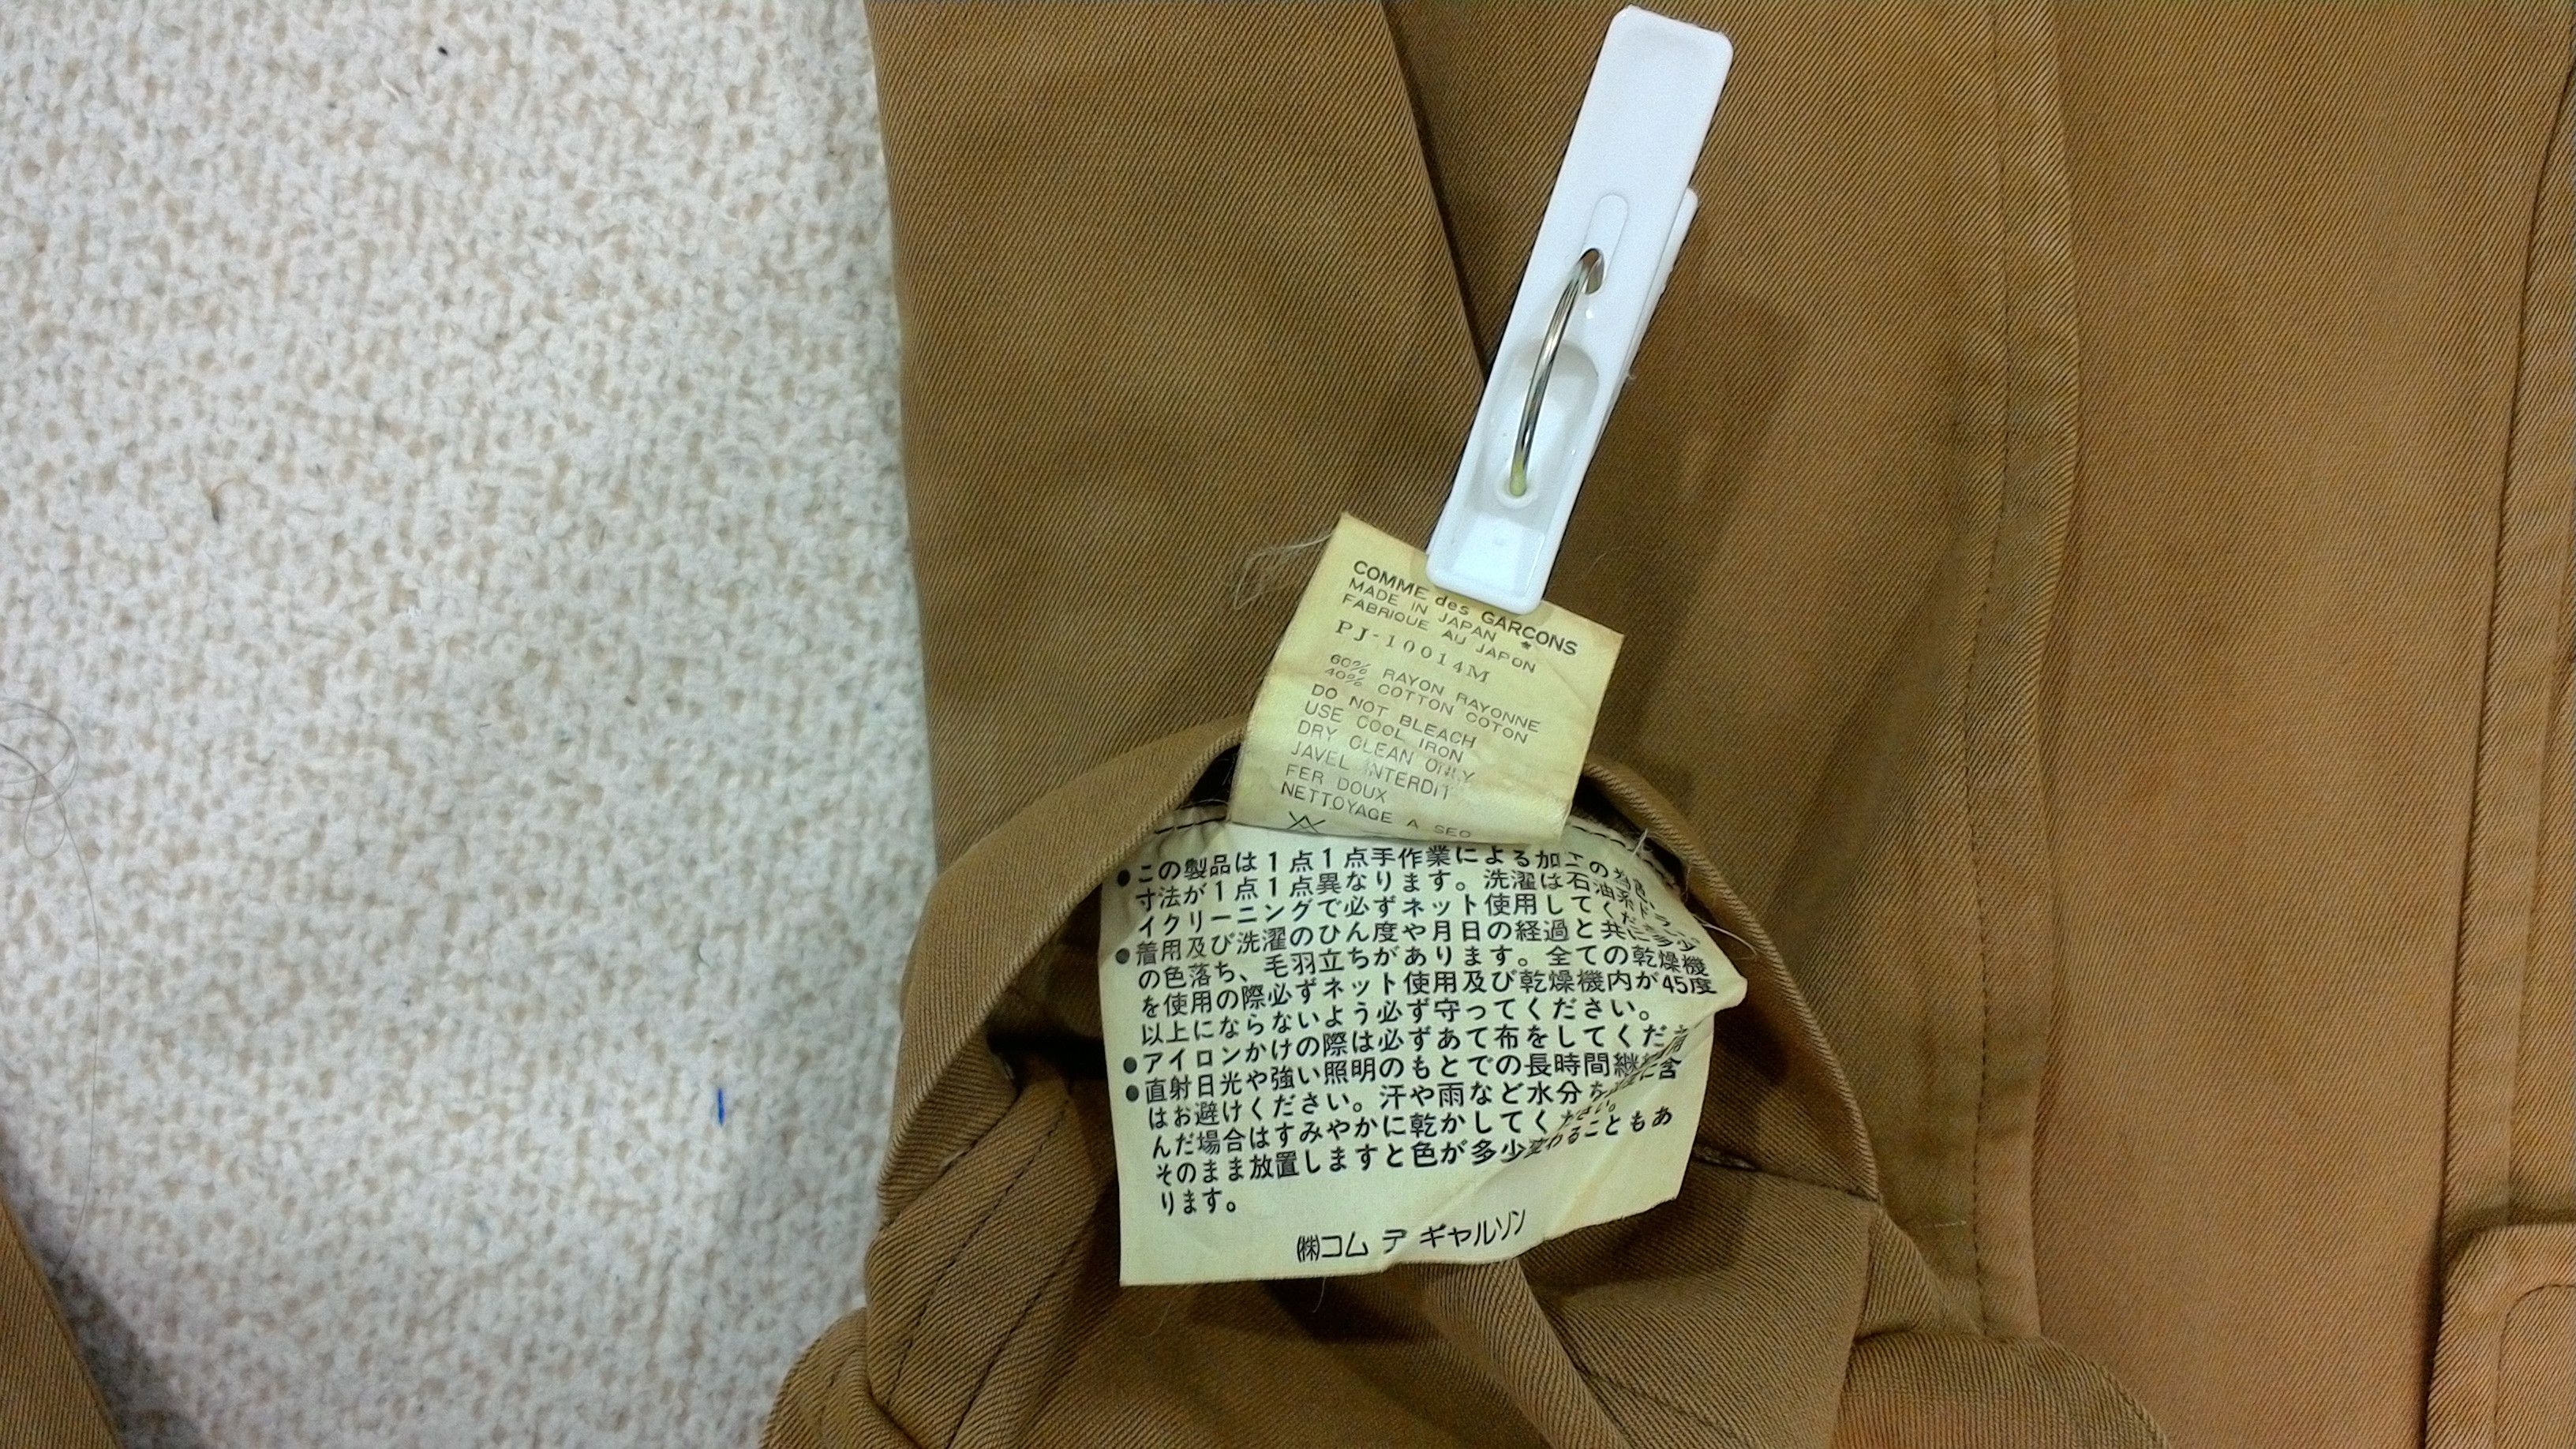 COMME des GARCONS
MADE IN JAPAN *
FABRIQUE AU JAPON
PJ-10014M
60% RAYON RAYONNE
40% COTTON COTON
DO NOT BLEACH
USE COOL IRON
DRY CLEAN ONLY
JAVEL INTERDIT
FER DOUX
NETTOYAGE A SEC
●この製品は1点1点手作業による加工の為色、
寸法が1点1点異なります。洗濯は石油系ドラ
イクリーニングで必ずネット使用してください。
●着用及び洗濯のひん度や月日の経過と共に多少
の色落ち、毛羽立ちがあります。全ての乾燥機
を使用の際必ずネット使用及び乾燥機内が45度
以上にならないよう必ず守ってください。
●アイロンかけの際は必ずあて布をしてくださ
●直射日光や強い照明のもとでの長時間継続
はお避けください。汗や雨など水分を含
んだ場合はすみやかに乾かしてください。
そのまま放置しますと色が多少変わることもあ
ります。
㈱コム デ ギャルソン